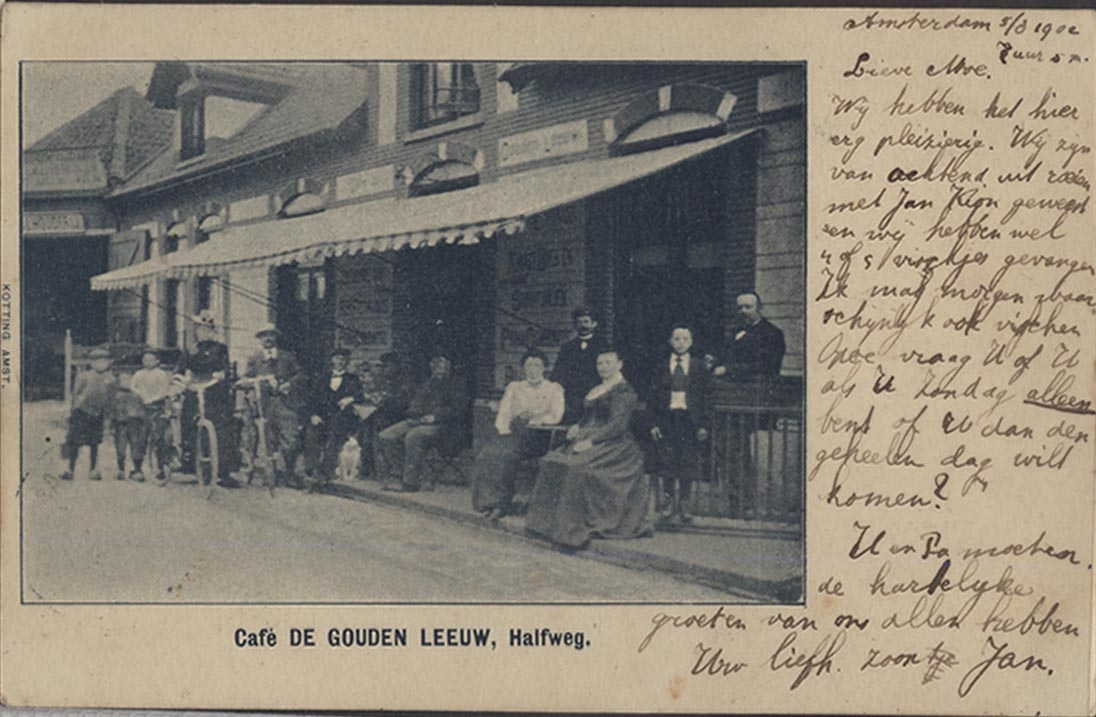 Amsterdam 5/8 1902
7 uur n.m.
Lieve Moe.
Wij hebben het hier
erg pleizierig. Wij zijn
van ochtend uit roeien
met Jan geweest
en wij hebben wel
4 of 5 vischjes gevangen
Ik mag morgen waar
schijnlyk ook visschen
Opoe vraag U of U
als U Zondag alleen
bent of U dan den
geheelen dag wilt
komen?
U en Pa moeten
de hartelyke
groeten van ons allen hebben
Uw liefh. zoontje Jan.
Gouden Leeuw
KOTTING AMST.
Café DE GOUDEN LEEUW, Halfweg.